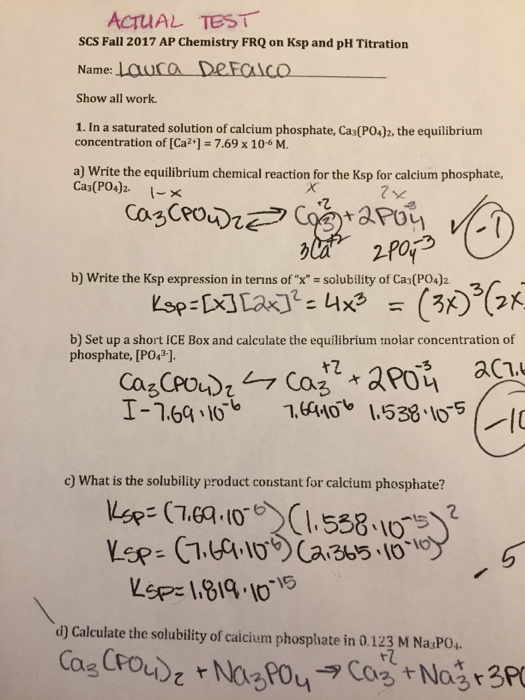 ACTUAL TEST
SCS Fall 2017 AP Chemistry FRQ on Ksp and pH Titration
Name: Laura DeFalco
Show all work.
1. In a saturated solution of calcium phosphate, Ca₃(PO₄)₂, the equilibrium
concentration of [Ca²⁺] = 7.69 x 10⁻⁶ M.
a) Write the equilibrium chemical reaction for the Ksp for calcium phosphate,
Ca₃(PO₄)₂.
1-x x 2x
Ca₃(PO₄)₂ ⇌ Ca₃⁺² + 2PO₄⁻³ ✓ -1
3Ca⁺² 2PO₄⁻³
b) Write the Ksp expression in terms of "x" = solubility of Ca₃(PO₄)₂.
Ksp=[x][2x]² = 4x³ = (3x)³(2x
b) Set up a short ICE Box and calculate the equilibrium molar concentration of
phosphate, [PO₄³⁻].
Ca₃(PO₄)₂ ⇌ Ca₃⁺² + 2PO₄⁻³ 2(7.6
I-7.69·10⁻⁶ 7.69·10⁻⁶ 1.538·10⁻⁵ -10
c) What is the solubility product constant for calcium phosphate?
Ksp= (7.69·10⁻⁶)(1.538·10⁻⁵)²
Ksp= (7.69·10⁻⁶)(2.365·10⁻¹⁰)
-5
Ksp= 1.819·10⁻¹⁵
d) Calculate the solubility of calcium phosphate in 0.123 M Na₃PO₄.
Ca₃(PO₄)₂ + Na₃PO₄ → Ca₃⁺² + Na₃⁺ + 3P